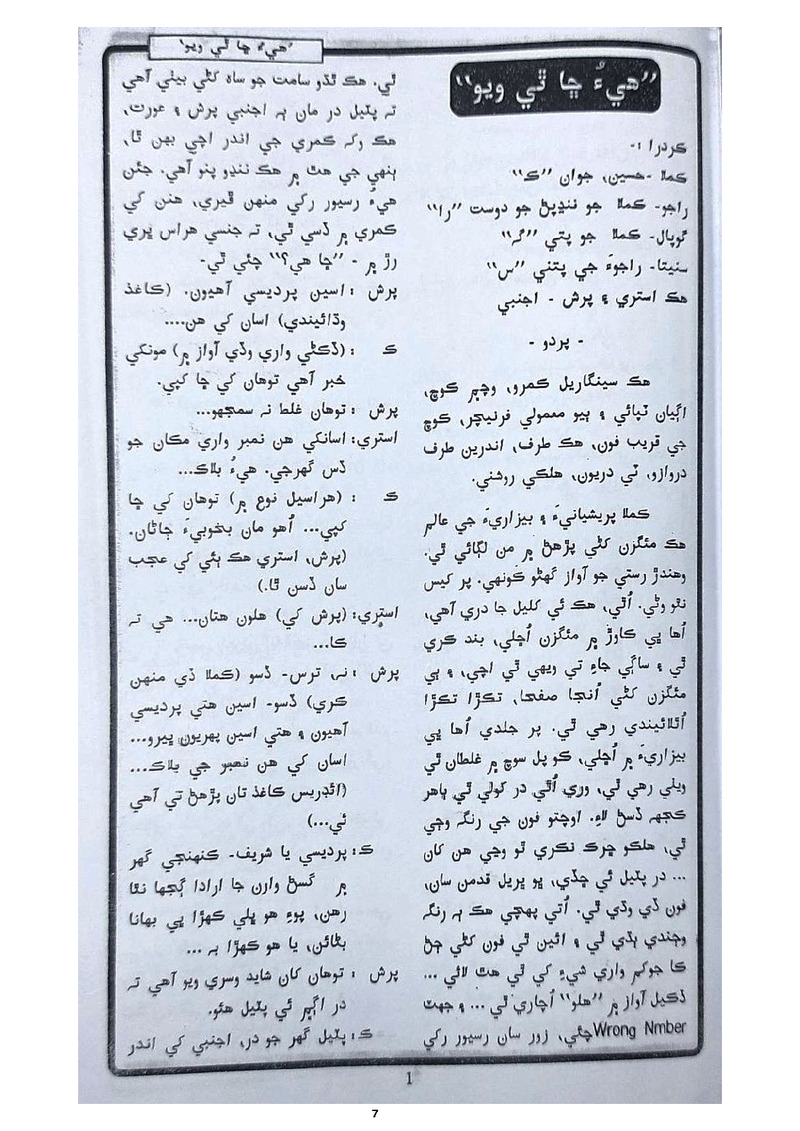 ”هيءُ ڇا ٿي ويو“
”هيءُ ڇا ٿي ويو“
ڪردرا :-
ڪملا -حسين، جوان ”ڪ“
راجو- ڪملا جو ننڍپڻ جو دوست ”را“
گوپال- ڪملا جو پتي ”گ“
سنيتا- راجوءَ جي پتني ”س“
هڪ استري ۽ پرش - اجنبي
- پردو -
هڪ سينگاريل ڪمرو، وچ۾ ڪوچ،
اڳيان ٽپائي ۽ ٻيو معمولي فرنيچر، ڪوچ
جي قريب فون، هڪ طرف، اندرين طرف
دروازو، ٽي دريون، هلڪي روشني.
ڪملا پريشانيءَ ۽ بيزاريءَ جي عالم
هڪ مئگزن کڻي پڙهڻ ۾ من لڳائي ٿي.
وهندڙ رستي جو آواز گهڻو ڪونهي. پر کيس
نٿو وڻي. اُٿي، هڪ ئي کليل جا دري آهي،
اُها ڀي ڪاوڙ ۾ مئگزن اُڇلي، بند ڪري
ٿي ۽ ساڳي جاءِ تي ويهي ٿي اچي، ۽ ٻي
مئگزن کڻي اُنجا صفحا، تڪڙا تڪڙا
اُٿلائيندي رهي ٿي. پر جلدي اُها ڀي
بيزاريءَ ۾ اُڇلي، ڪو پل سوچ ۾ غلطان ٿي
ويلي رهي ٿي، وري اُٿي در کولي ٿي ٻاهر
ڪجهه ڏسڻ لاءِ. اوچتو فون جي رنگ وڄي
ٿي، هلڪو ڇرڪ نڪري ٿو وڃي هن کان
... در پٽيل ئي ڇڏي، ڀو ڀريل قدمن سان،
فون ڏي وڌي ٿي. اُتي پهچي هڪ ٻه رنگ
وڄندي ٻڌي ٿي ۽ ائين ٿي فون کڻي ڄڻ
ڪا جوکم واري شيءِ کي ٿي هٿ لائي ...
ڏکيل آواز ۾ ”هلو“ اُچاري ٿي ... ۽ جهٽ
Wrong Nmber چئي، زور سان رسيور رکي
ٿي. هڪ ٿڌو سامت جو ساه کڻي بيٺي آهي
ته پٽيل در مان ٻه اجنبي پرش ۽ عورت،
هڪ رک ڪمري جي اندر اچي بهن ٿا،
ٻنهي جي هٿ ۾ هڪ ننڍو پنو آهي. جئن
هيءُ رسيور رکي منهن ڦيري، هنن کي
ڪمري ۾ ڏسي ٿي، ته جنسي هراس ڀري
رڙ ۾ - ”ڇا هي؟“ چئي ٿي-
پرش : اسين پرديسي آهيون. (ڪاغذ
وڌائيندي) اسان کي هن....
ڪ : (ڏکڻي واري وڏي آواز ۾) مونکي
خبر آهي توهان کي ڇا کپي.
پرش : توهان غلط نه سمجهو...
استري: اسانکي هن نمبر واري مڪان جو
ڏس گهرجي. هيءُ بلاڪ...
ڪ : (هراسيل نوع ۾) توهان کي ڇا
کپي... اُهو مان بخوبيءَ ڄاڻان.
(پرش، استري هڪ ٻئي کي عجب
سان ڏسن ٿا.)
استري: (پرش کي) هلون هتان... هي ته
ڪا...
پرش : نہ، ترس- ڏسو (ڪملا ڏي منهن
ڪري) ڏسو- اسين هتي پرديسي
آهيون ۽ هتي اسين پهريون ڀيرو...
اسان کي هن نمبو جي بلاڪ...
(ائڊريس ڪاغذ تان پڙهڻ تي آهي
ئي...)
ڪ: پرديسي يا شريف- ڪنهنجي گهر
۾ گسڻ وارن جا ارادا ڳجها نٿا
رهن، پوءِ هو ڀلي کهڙا ڀي بهانا
بڻائن، يا هو کهڙا بہ ...
پرش : توهان کان شايد وسري ويو آهي ته
در اڳ۾ ئي پٽيل هئو.
ڪ: پٽيل گهر جو در، اجنبي کي اندر
1
7